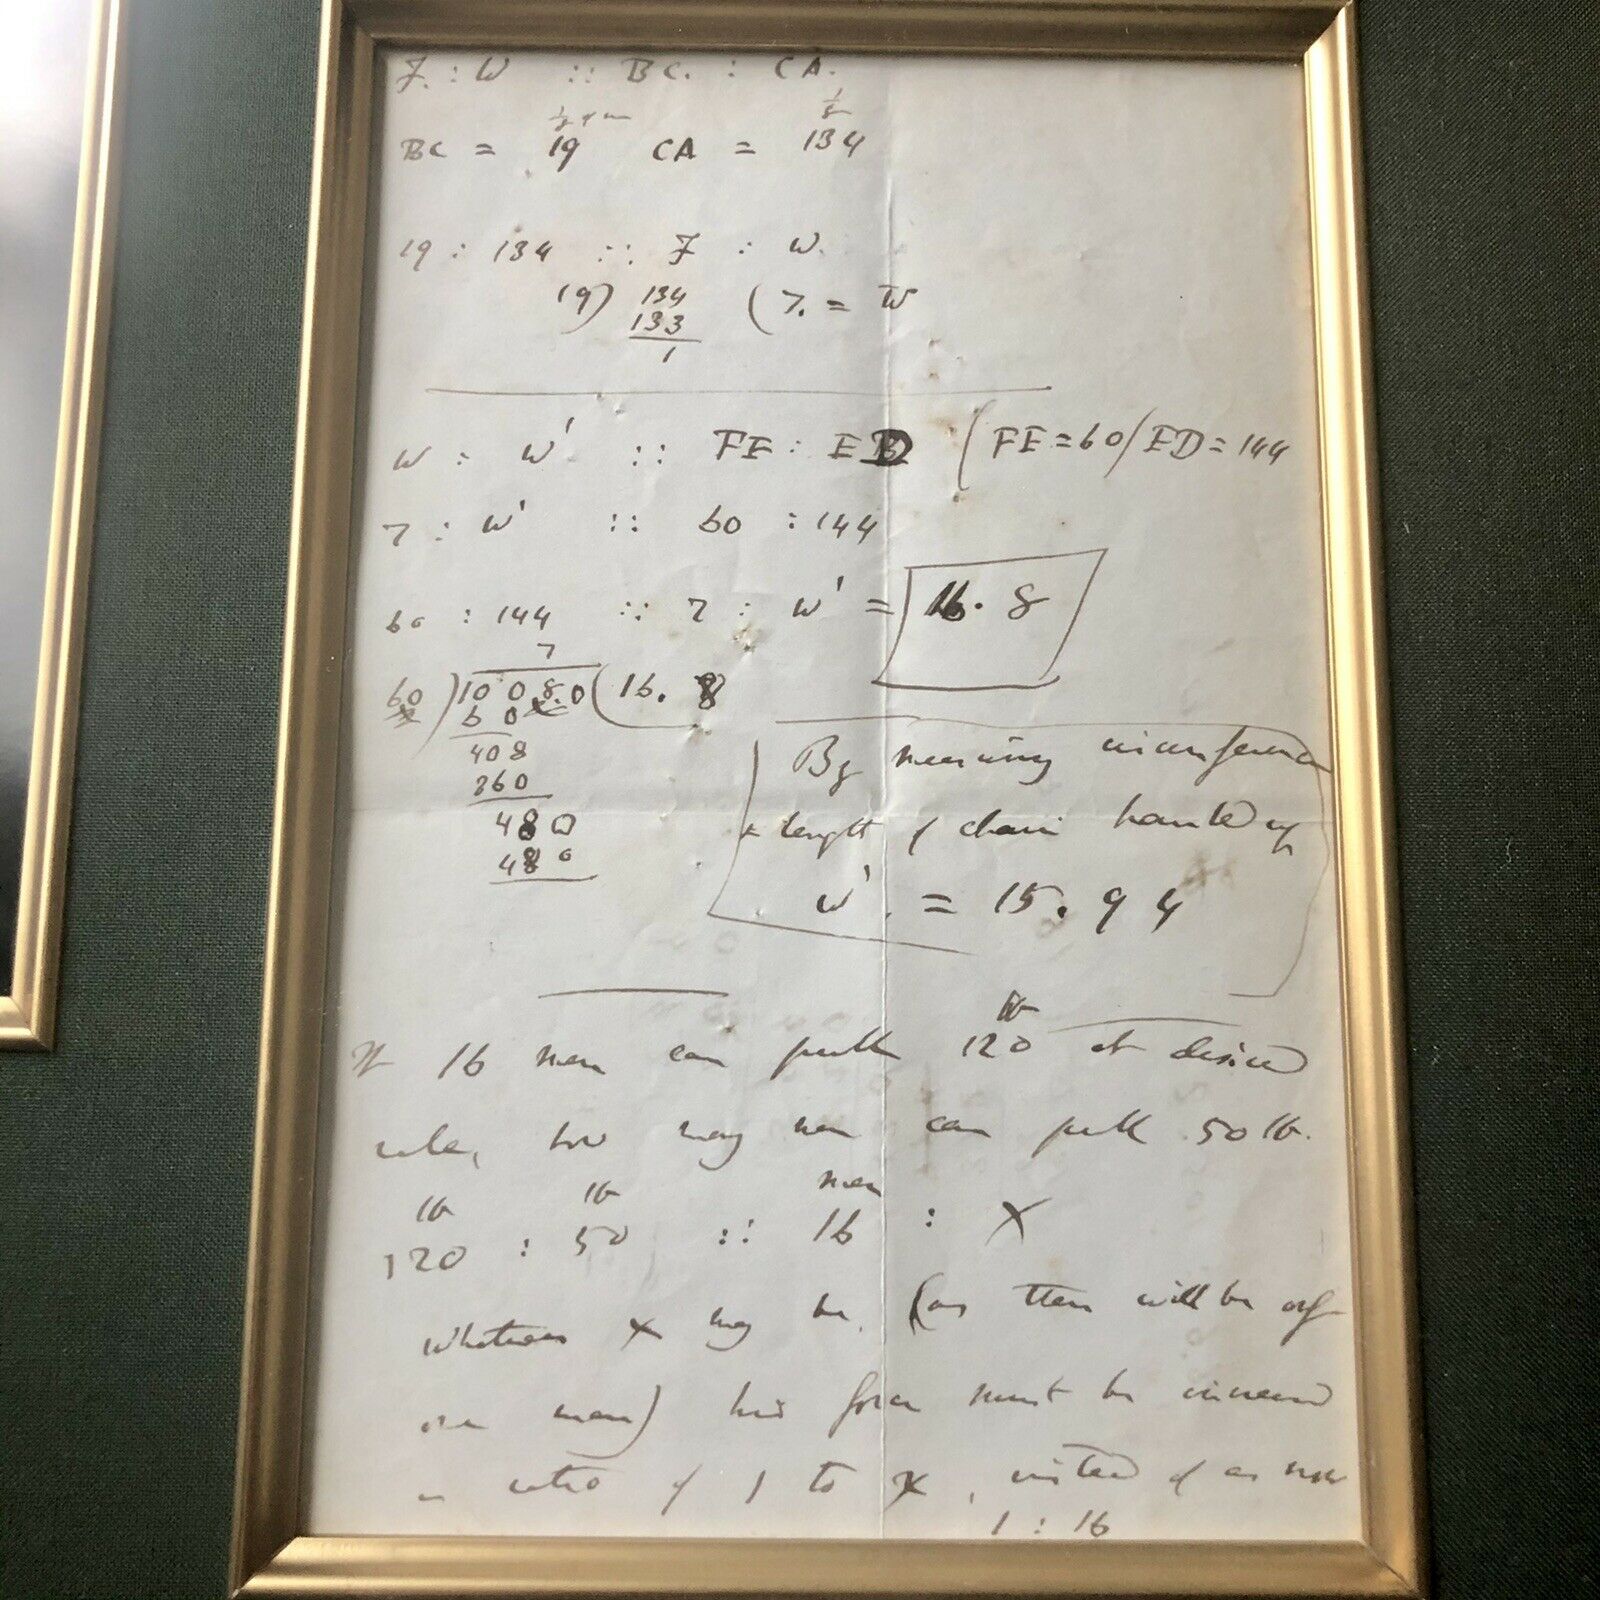 F. : W :: BC. : CA.
BC = 19 CA = 134
19 : 134 :: F : W.
19) 134 (7. = W
133
1
W : W' :: FE : ED (FE = 60 / ED = 144
7 : W' :: 60 : 144
60 : 144 :: 7 : W' = 16.8
7
60) 10080 (16.8
60
408
360
480
480
By measuring circumference
& length of chain hauled up
W' = 15.94
If 16 men can pull 120 lb at desired
rate, how many men can pull 50 lb.
lb lb men
120 : 50 :: 16 : X
Whatever X may be, (as there will be only
one man) his force must be increased
in ratio of 1 to X, instead of as now
1 : 16